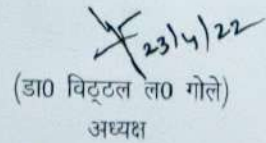 23/4/22
(डा0 विट्टल ल0 गोले)
अध्यक्ष